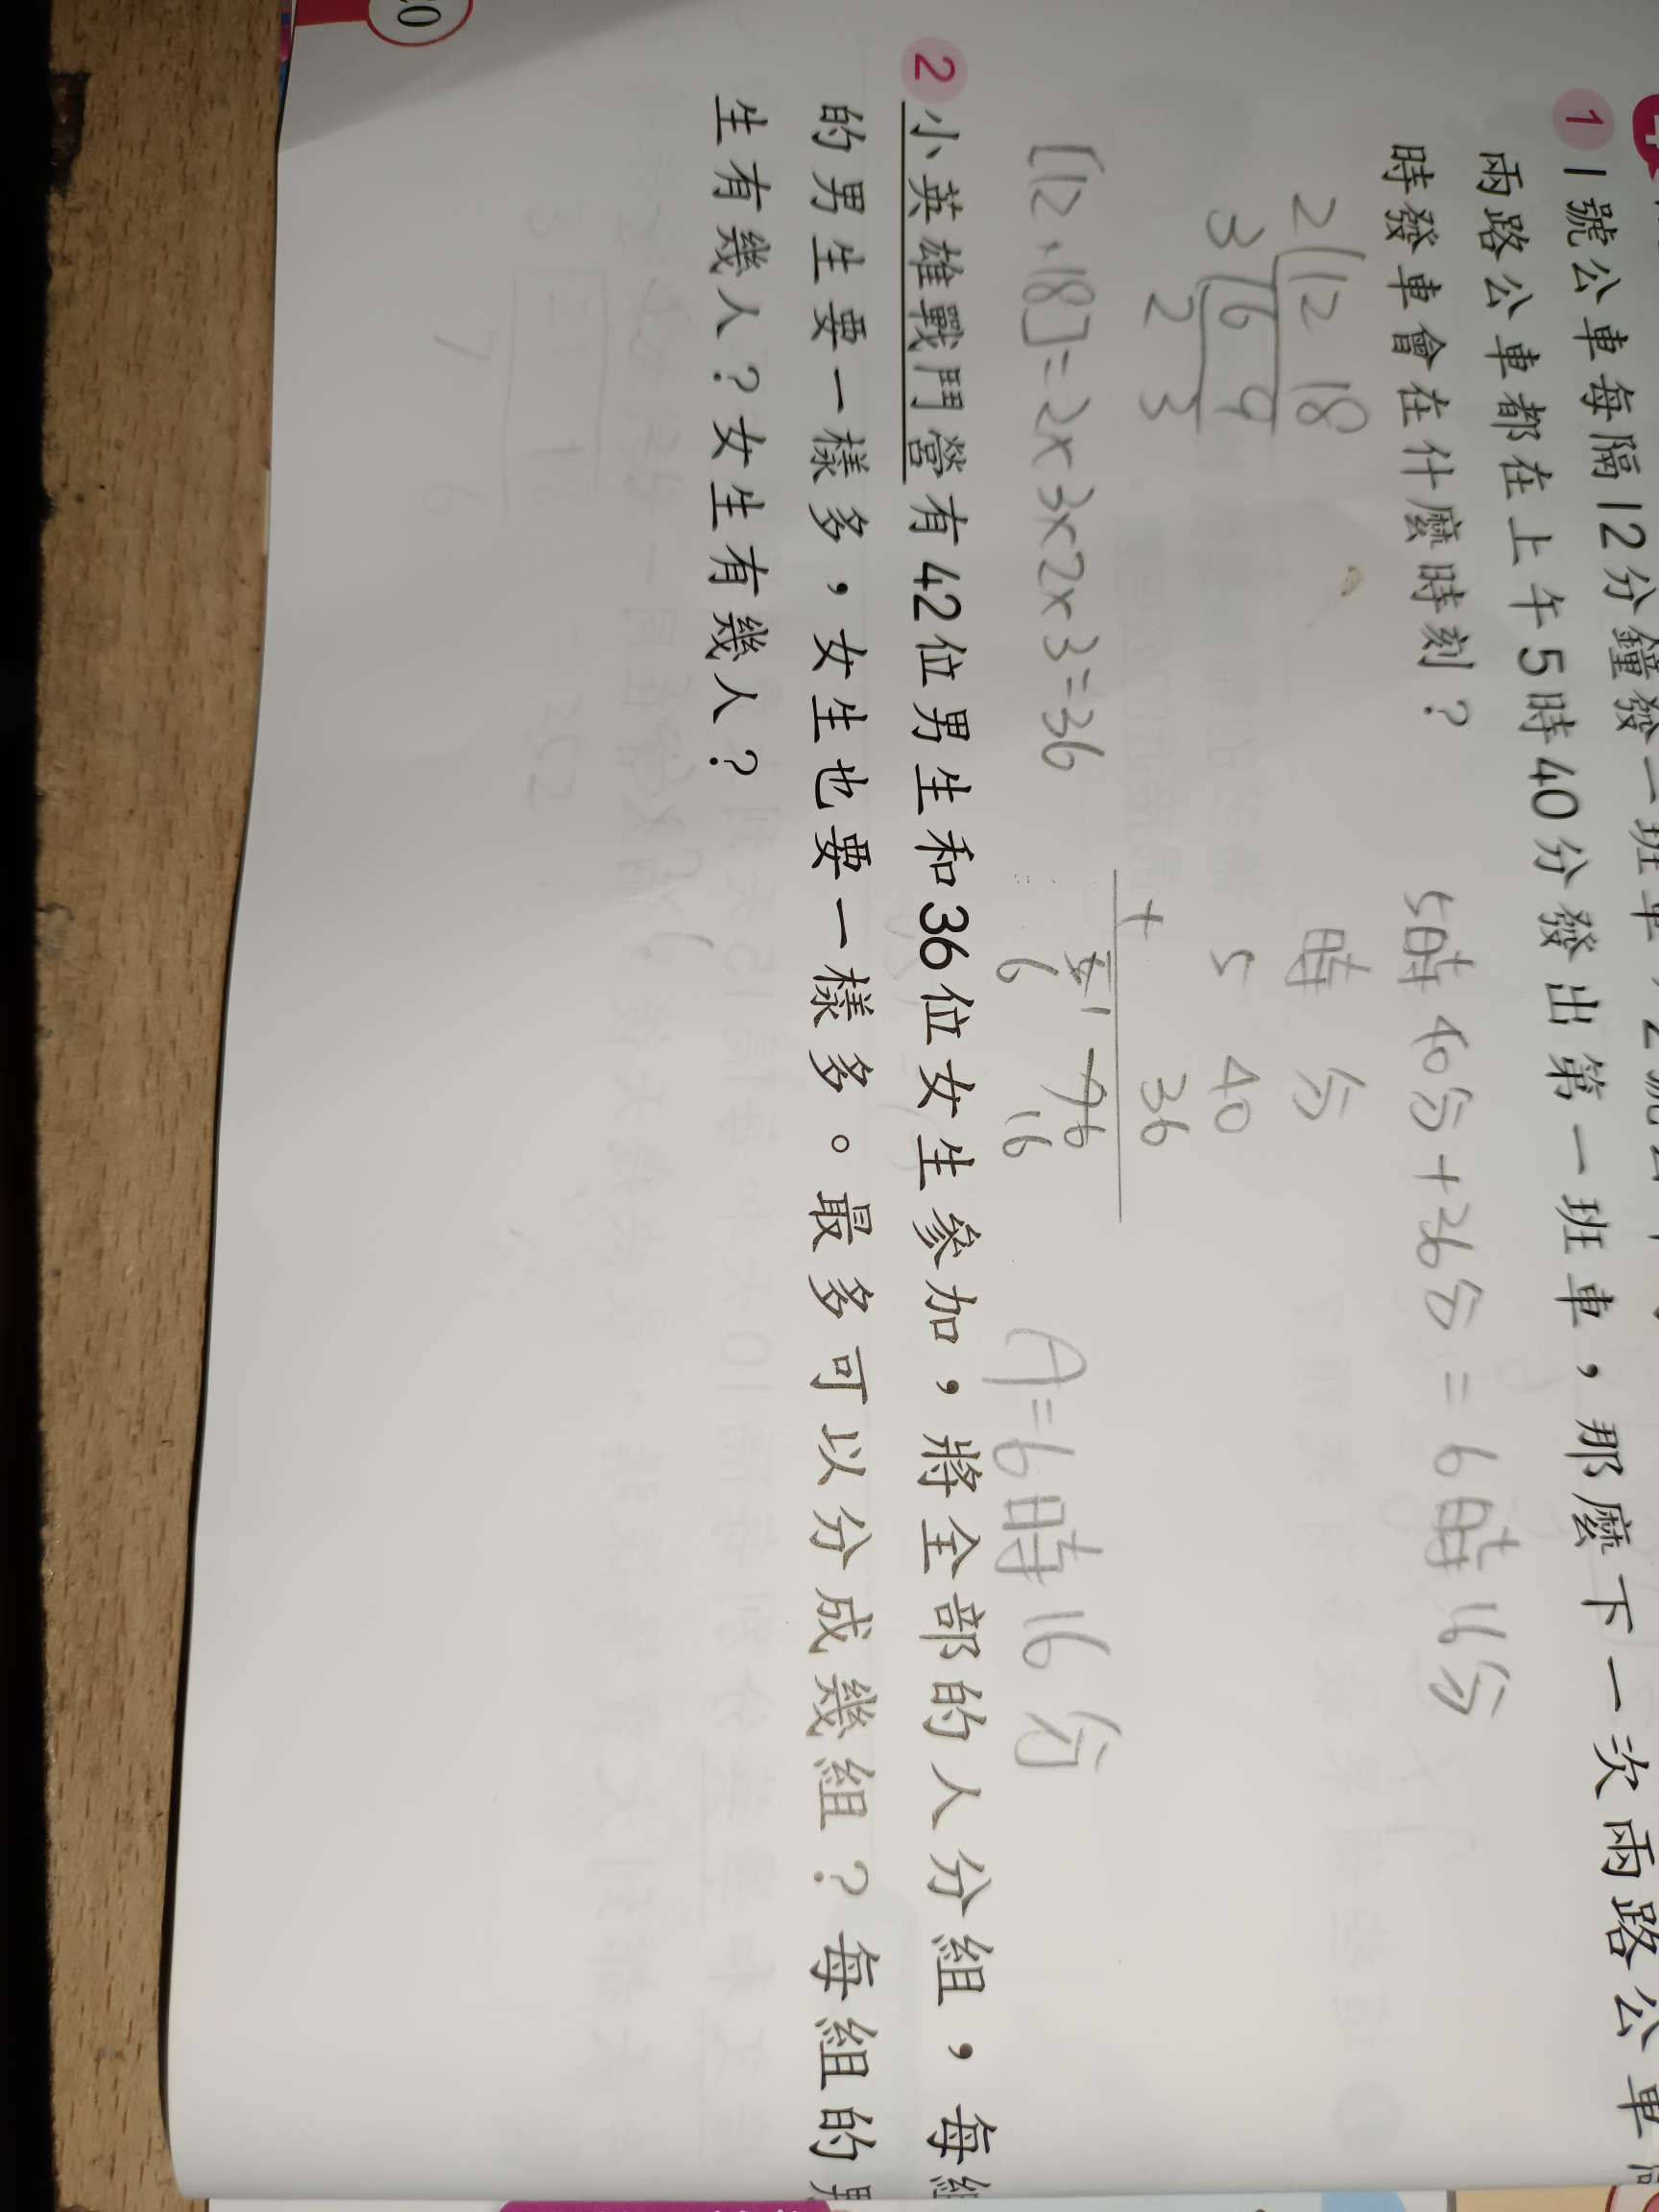 1 1號公車每隔12分鐘發一班車，2號公車
兩路公車都在上午5時40分發出第一班車，那麼下一次兩路公車同
時發車會在什麼時刻？
5時40分+36分=6時16分
2 12 18
3 6 9
2 3
時 分
5 40
+ 36
76
6 16
[12,18]=2x3x2x3=36
A=6時16分
2 小英雄戰鬥營有42位男生和36位女生參加，將全部的人分組，每組
的男生要一樣多，女生也要一樣多。最多可以分成幾組？每組的男
生有幾人？女生有幾人？